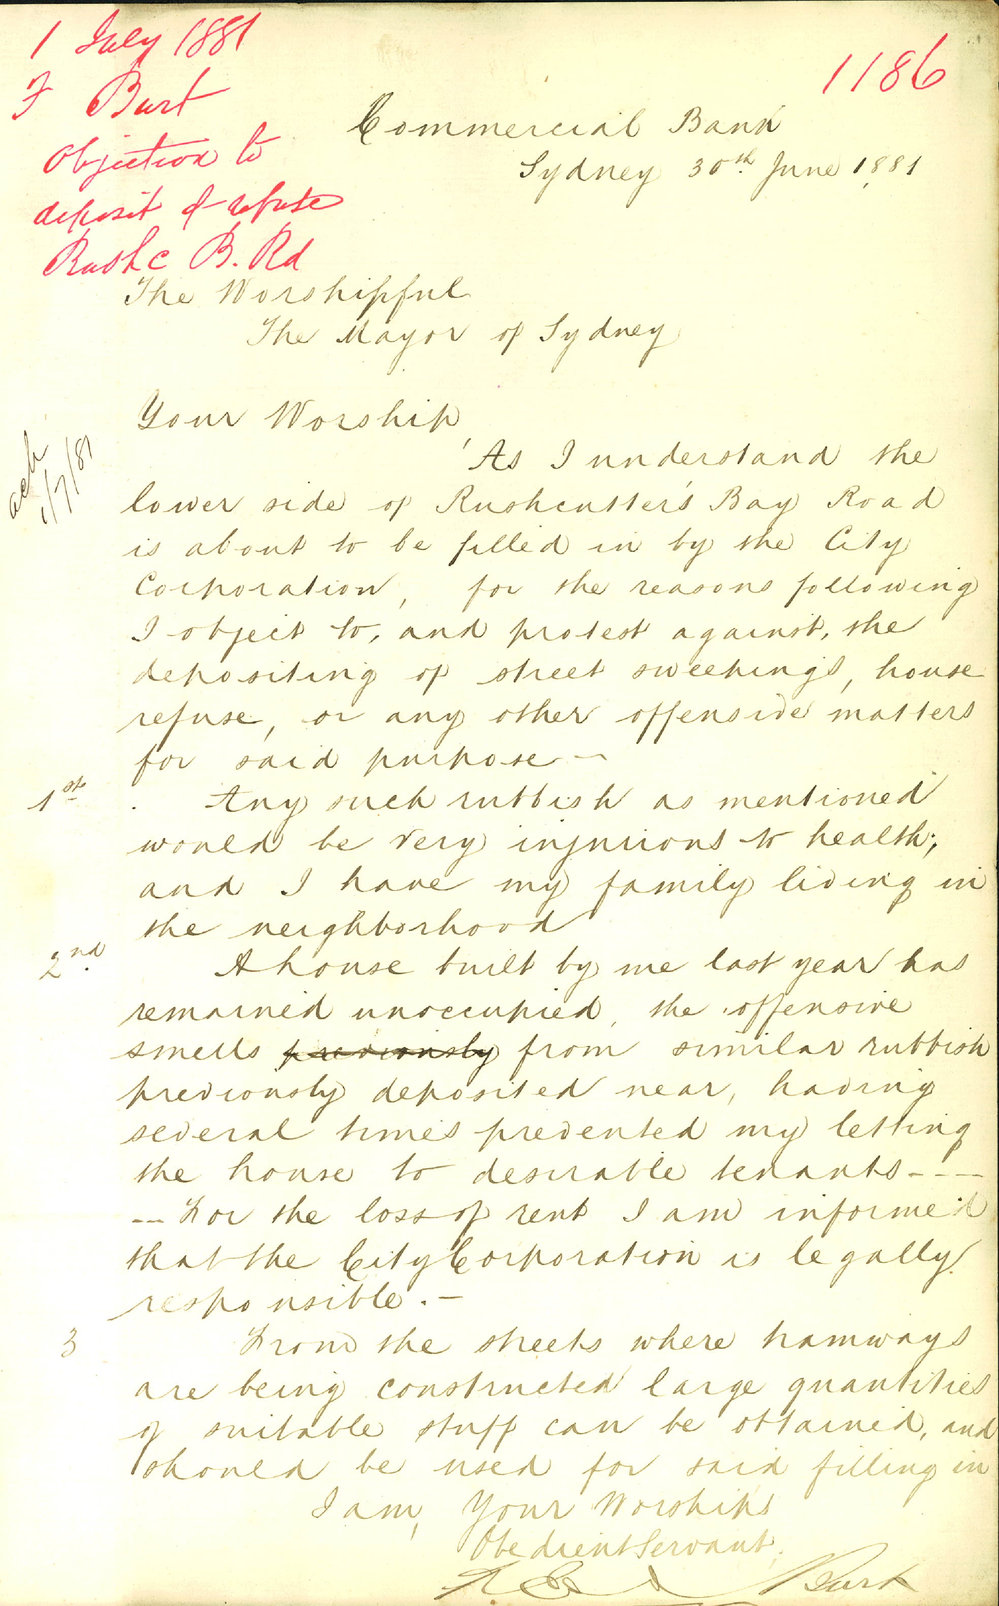 1 July 1881
F Burt
Objection to
deposit of refuse
Rushc B. Rd
1186
Commercial Bank
Sydney 30th June 1881
The Worshipful
The Mayor of Sydney
ack
1/7/81
Your Worship
As I understand the
lower side of Rushcutter's Bay Road
is about to be filled in by the City
Corporation, for the reasons following
I object to, and protest against, the
depositing of street sweepings, house
refuse, or any other offensive matters
for said purpose —
1st. Any such rubbish as mentioned
would be very injurious to health;
and I have my family living in
the neighborhood
2nd. A house built by me last year has
remained unoccupied, the offensive
smells previously from similar rubbish
previously deposited near, having
several times prevented my letting
the house to desirable tenants - - -
-- For the loss of rent I am informed
that the City Corporation is legally
responsible. —
3 From the streets where tramways
are being constructed large quantities
of suitable stuff can be obtained, and
should be used for said filling in
I am, Your Worship's
Obedient Servant,
Burt